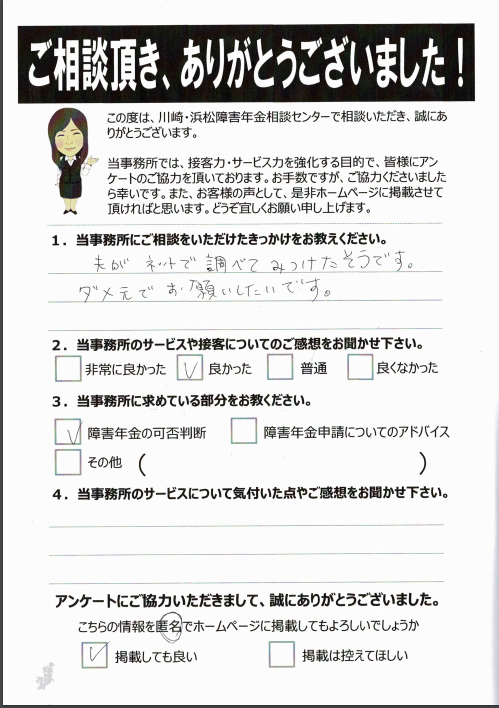 ご相談頂き、ありがとうございました！
この度は、川崎・浜松障害年金相談センターで相談いただき、誠にあ
りがとうございます。
当事務所では、接客力・サービス力を強化する目的で、皆様にアン
ケートのご協力を頂いております。お手数ですが、ご協力くださいました
ら幸いです。また、お客様の声として、是非ホームページに掲載させて
頂ければと思います。どうぞ宜しくお願い申し上げます。
1．当事務所にご相談をいただけたきっかけをお教えください。
夫が ネットで調べて みつけたそうです。
ダメ元で お願いしたいです。
2．当事務所のサービスや接客についてのご感想をお聞かせ下さい。
非常に良かった ✓ 良かった 普通 良くなかった
3．当事務所に求めている部分をお教ください。
✓ 障害年金の可否判断 障害年金申請についてのアドバイス
その他 （ ）
4．当事務所のサービスについて気付いた点やご感想をお聞かせ下さい。
アンケートにご協力いただきまして、誠にありがとうございました。
こちらの情報を匿名でホームページに掲載してもよろしいでしょうか
✓ 掲載しても良い 掲載は控えてほしい